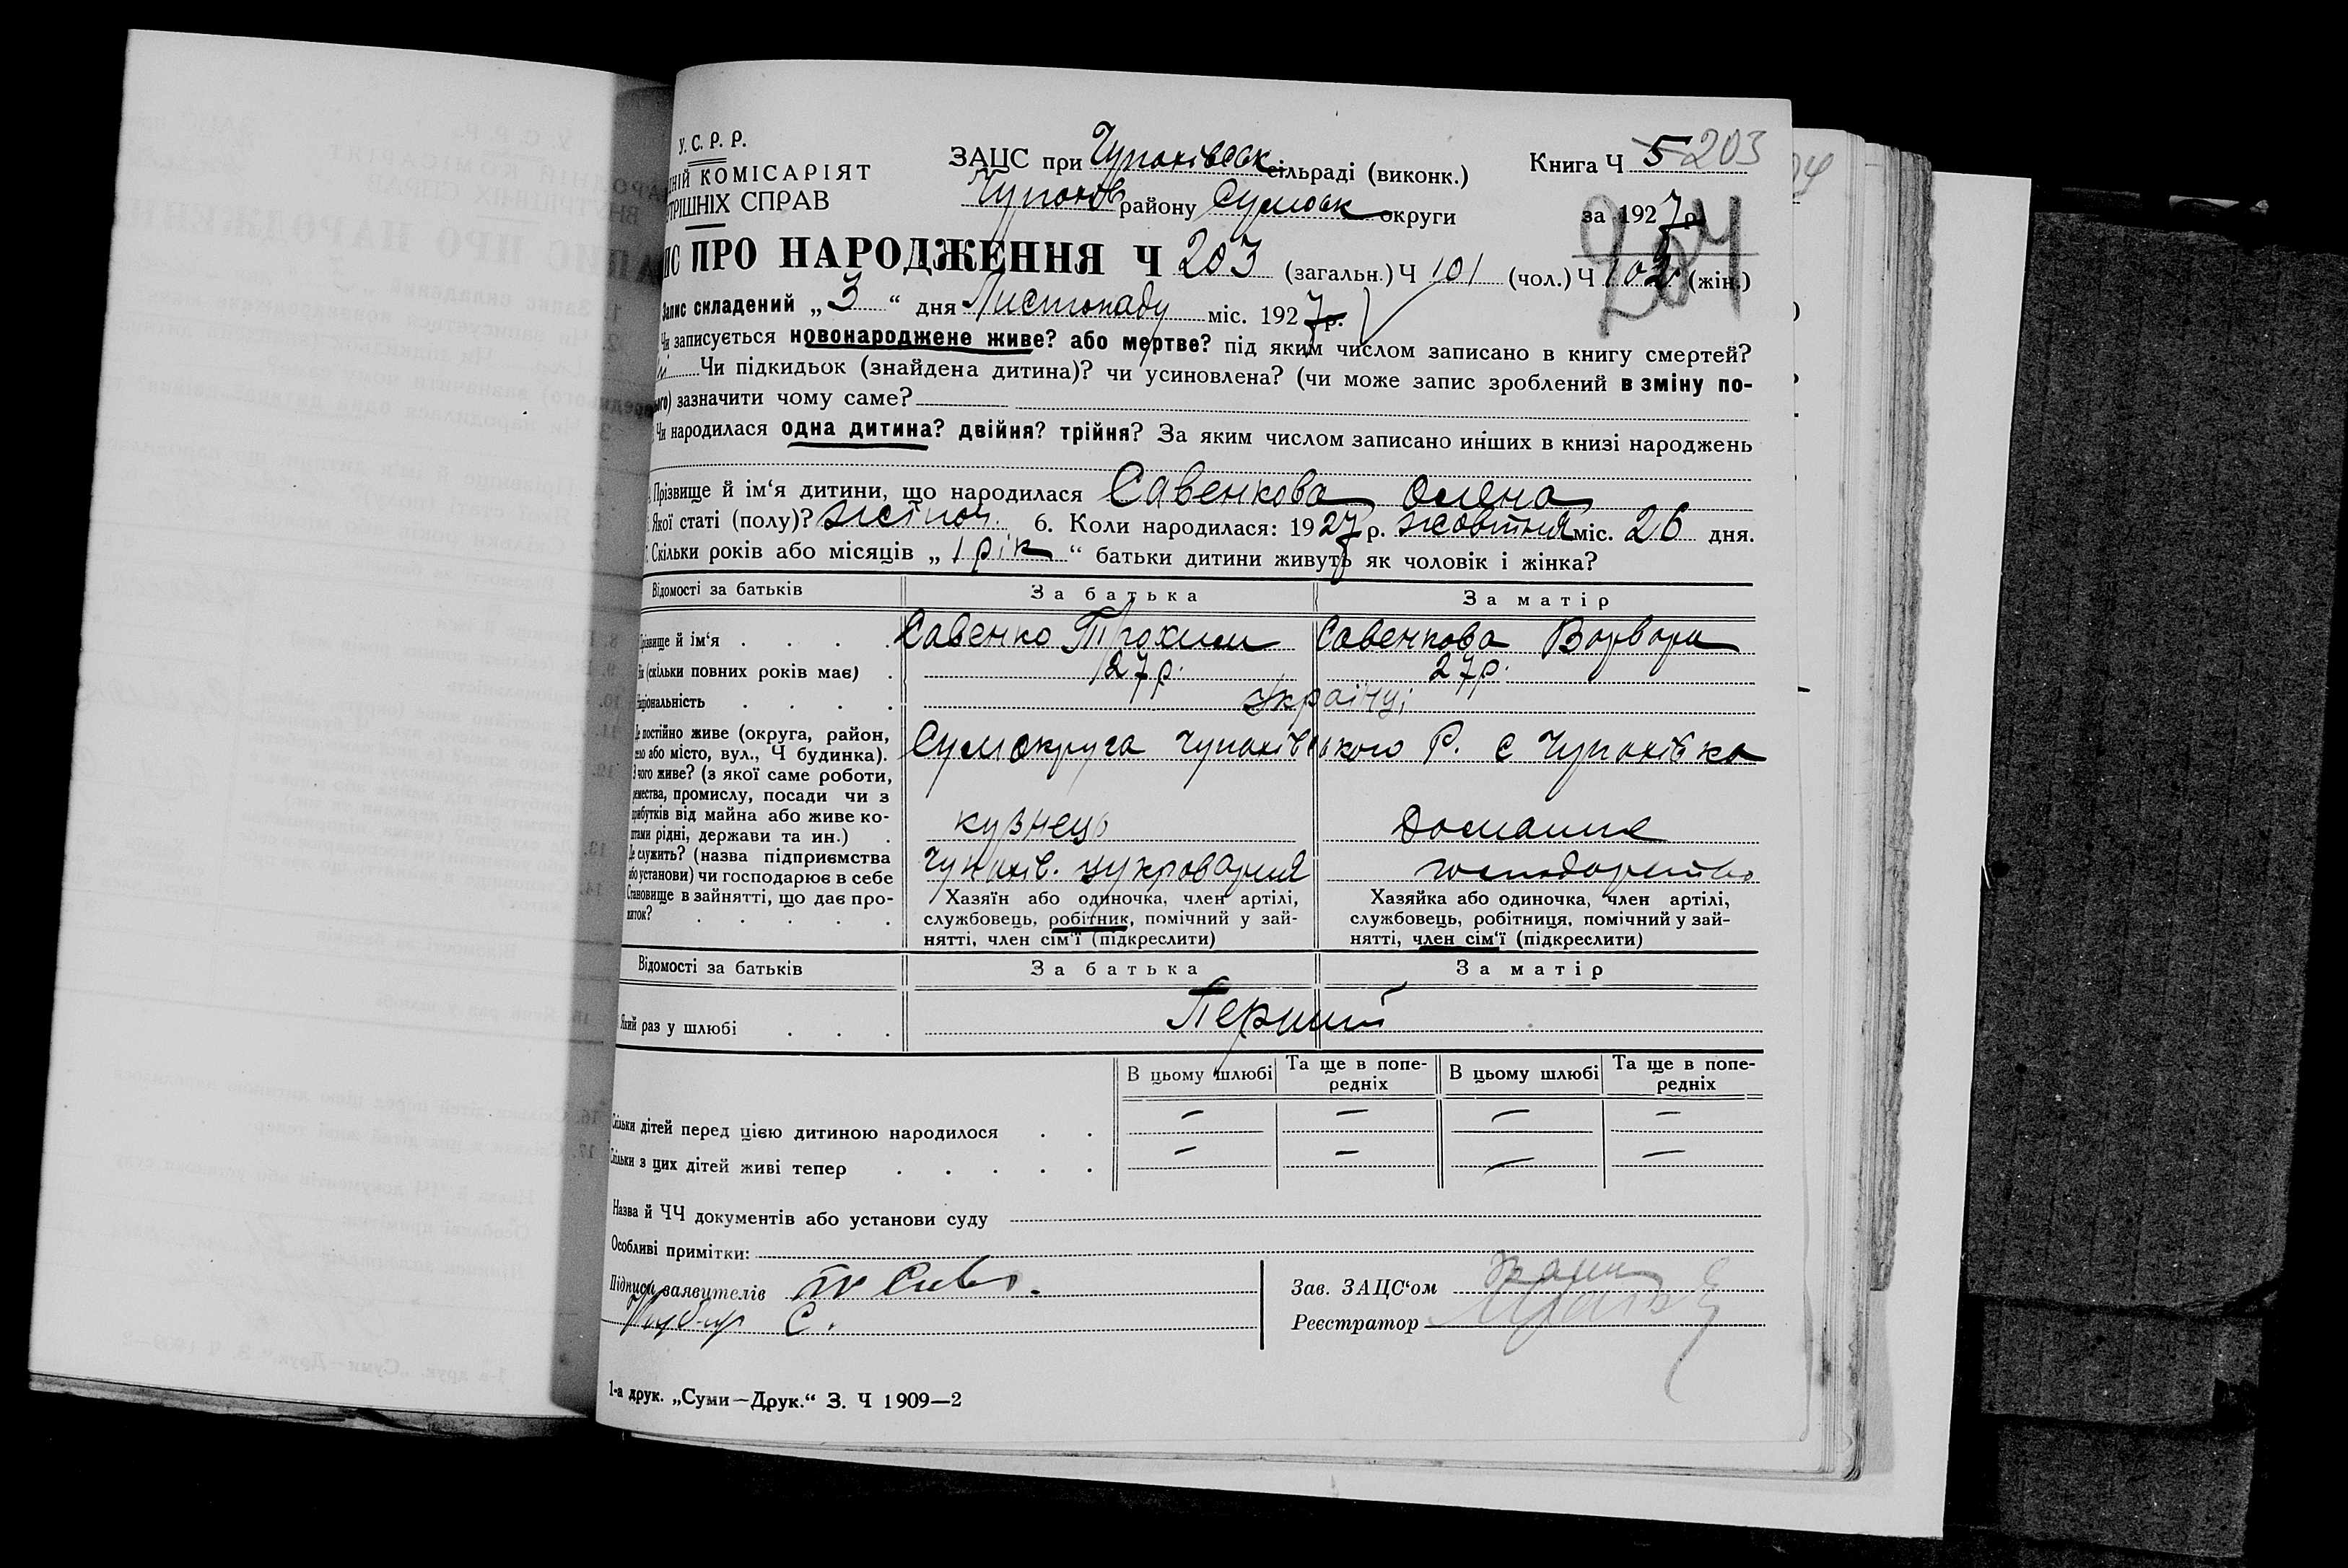 У. С. Р. Р.
НІЙ КОМІСАРІЯТ
ТРІШНІХ СПРАВ
ЗАЦС при Чупахівськ сільраді (виконк.)
Чупахів району Сумськ округи
Книга Ч 5 203
за 1927 р.
204
ИС ПРО НАРОДЖЕННЯ Ч 203 (загальн.) Ч 101 (чол.) Ч 102 (жін.)
Запис складений „ 3 “ дня Листопаду міс. 1927 р.
Чи записується новонароджене живе? або мертве? під яким числом записано в книгу смертей?
Чи підкидьок (знайдена дитина)? чи усиновлена? (чи може запис зроблений в зміну по-
ього) зазначити чому саме?
Чи народилася одна дитина? двійня? трійня? За яким числом записано инших в книзі народжень
Прізвище й ім‘я дитини, що народилася Савенкова Олена
Якої статі (полу)? жіноч. 6. Коли народилася: 1927 р. жовтня міс. 26 дня.
Скільки років або місяців „ 1 рік “ батьки дитини живуть як чоловік і жінка?
Відомості за батьків За батька За матір
різвище й ім‘я . . . . Савенко Трохим Савенкова Варвара
ік (скільки повних років має) . 27 р. 27 р.
аціональність . . . . Українці
Де постійно живе (округа, район,
село або місто, вул., Ч будинка). Сумокруга Чупахівського Р. с Чупахівка
З чого живе? (з якої саме роботи,
ремества, промислу, посади чи з
прибутків від майна або живе ко-
штами рідні, держави та ин.) . кузнець Домашнє
Де служить? (назва підприємства
або установи) чи господарює в себе Чупахів. цукроварня господарство
Становище в зайнятті, що дає про-
житок? . . . . .
Хазяїн або одиночка, член артілі,
службовець, робітник, помічний у зай-
нятті, член сім‘ї (підкреслити)
Хазяйка або одиночка, член артілі,
службовець, робітниця, помічний у зай-
нятті, член сім‘ї (підкреслити)
Відомості за батьків За батька За матір
Який раз у шлюбі . . . Перший
В цьому шлюбі Та ще в попе-
редніх В цьому шлюбі Та ще в попе-
редніх
Скільки дітей перед цією дитиною народилося . . — — — —
Скільки з цих дітей живі тепер . . . . . — — — —
Назва й ЧЧ документів або установи суду
Особливі примітки:
Підписи заявителів
С.
Зав. ЗАЦС‘ом
Реєстратор
1-а друк. „Суми—Друк.“ З. Ч 1909—2